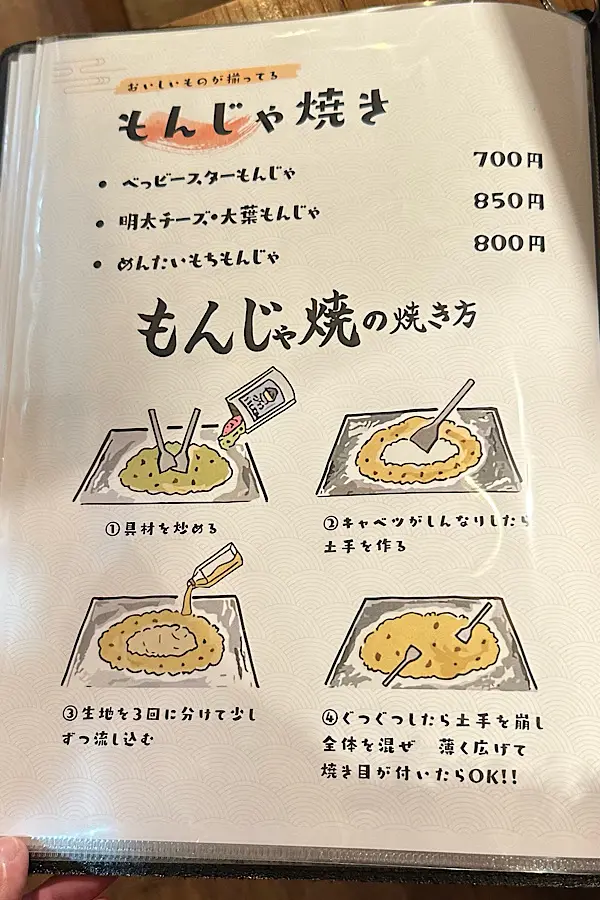 おいしいものが揃ってる
もんじゃ焼き
• べっビースターもんじゃ 700円
• 明太チーズ•大葉もんじゃ 850円
• めんたいもちもんじゃ 800円
もんじゃ焼の焼き方
①具材を炒める
②キャベツがしんなりしたら
土手を作る
③生地を3回に分けて少し
ずつ流し込む
④ぐつぐつしたら土手を崩し
全体を混ぜ 薄く広げて
焼き目が付いたらOK!!